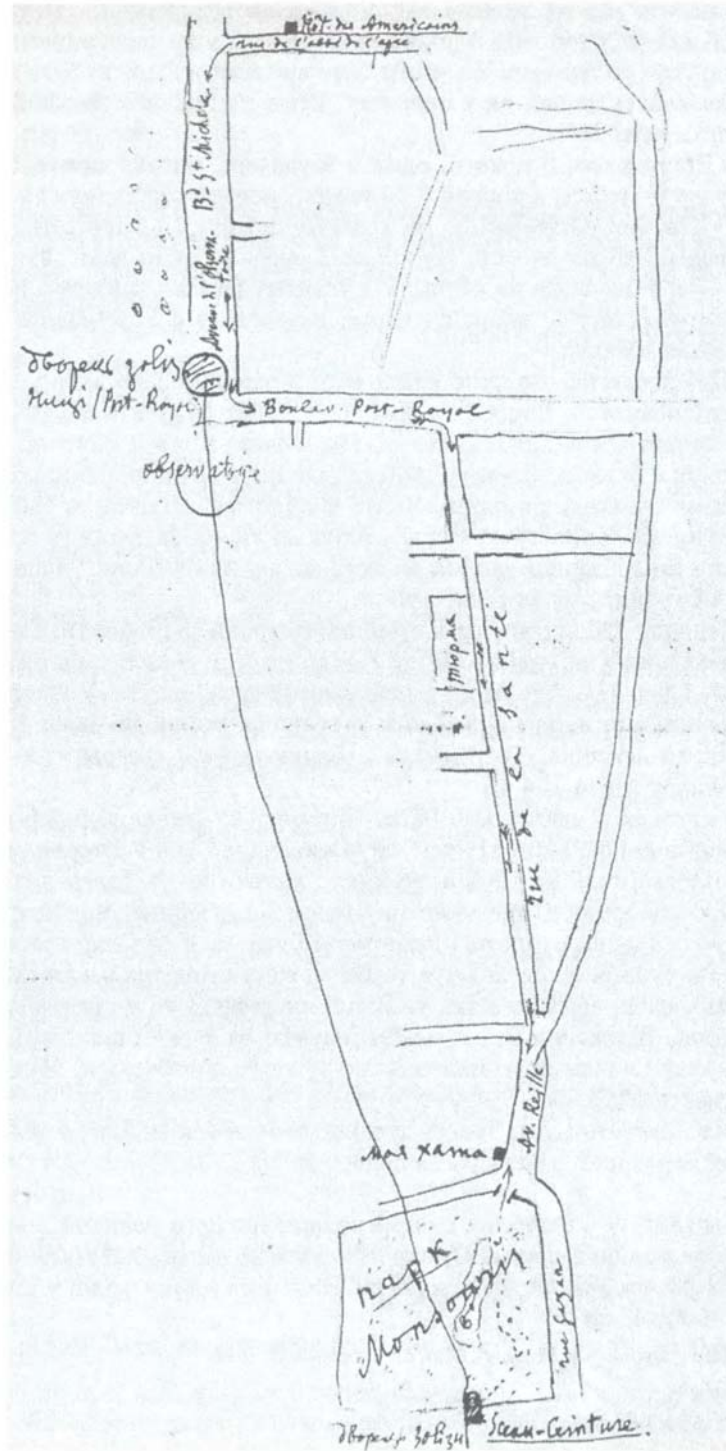 Hôt. des Américains
rue de l'abbé de l'epée
Bd St Michel
Avenue de l'Observatoire
дворець зовіз
ниці / Port-Royal
Boulev Port-Royal
observatoire
тюрма
rue de la Santé
Av. Reille
моя хата
парк
„Монсурі"
rue Gazan
дворець зовізн
Sceau-Ceinture.